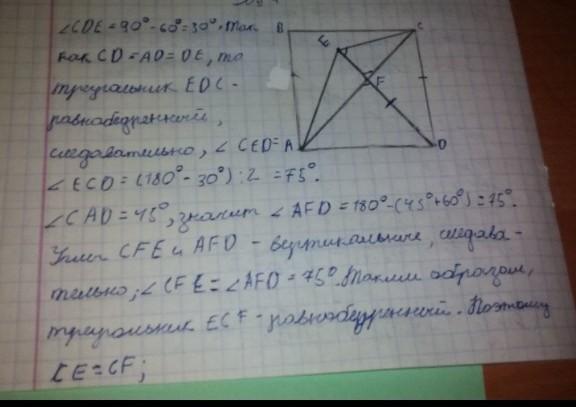 ∠CDE = 90° - 60° = 30°. Так
как CD = AD = DE, то
треугольник EDC -
равнобедренный,
следовательно, ∠CED =
∠ECD = (180° - 30°) : 2 = 75°.
∠CAD = 45°, значит ∠AFD = 180° - (45° + 60°) = 75°.
Углы CFE и AFD - вертикальные, следова-
тельно, ∠CFE = ∠AFD = 75°. Таким образом,
треугольник ECF - равнобедренный. Поэтому
CE = CF;
B
C
E
F
A
D